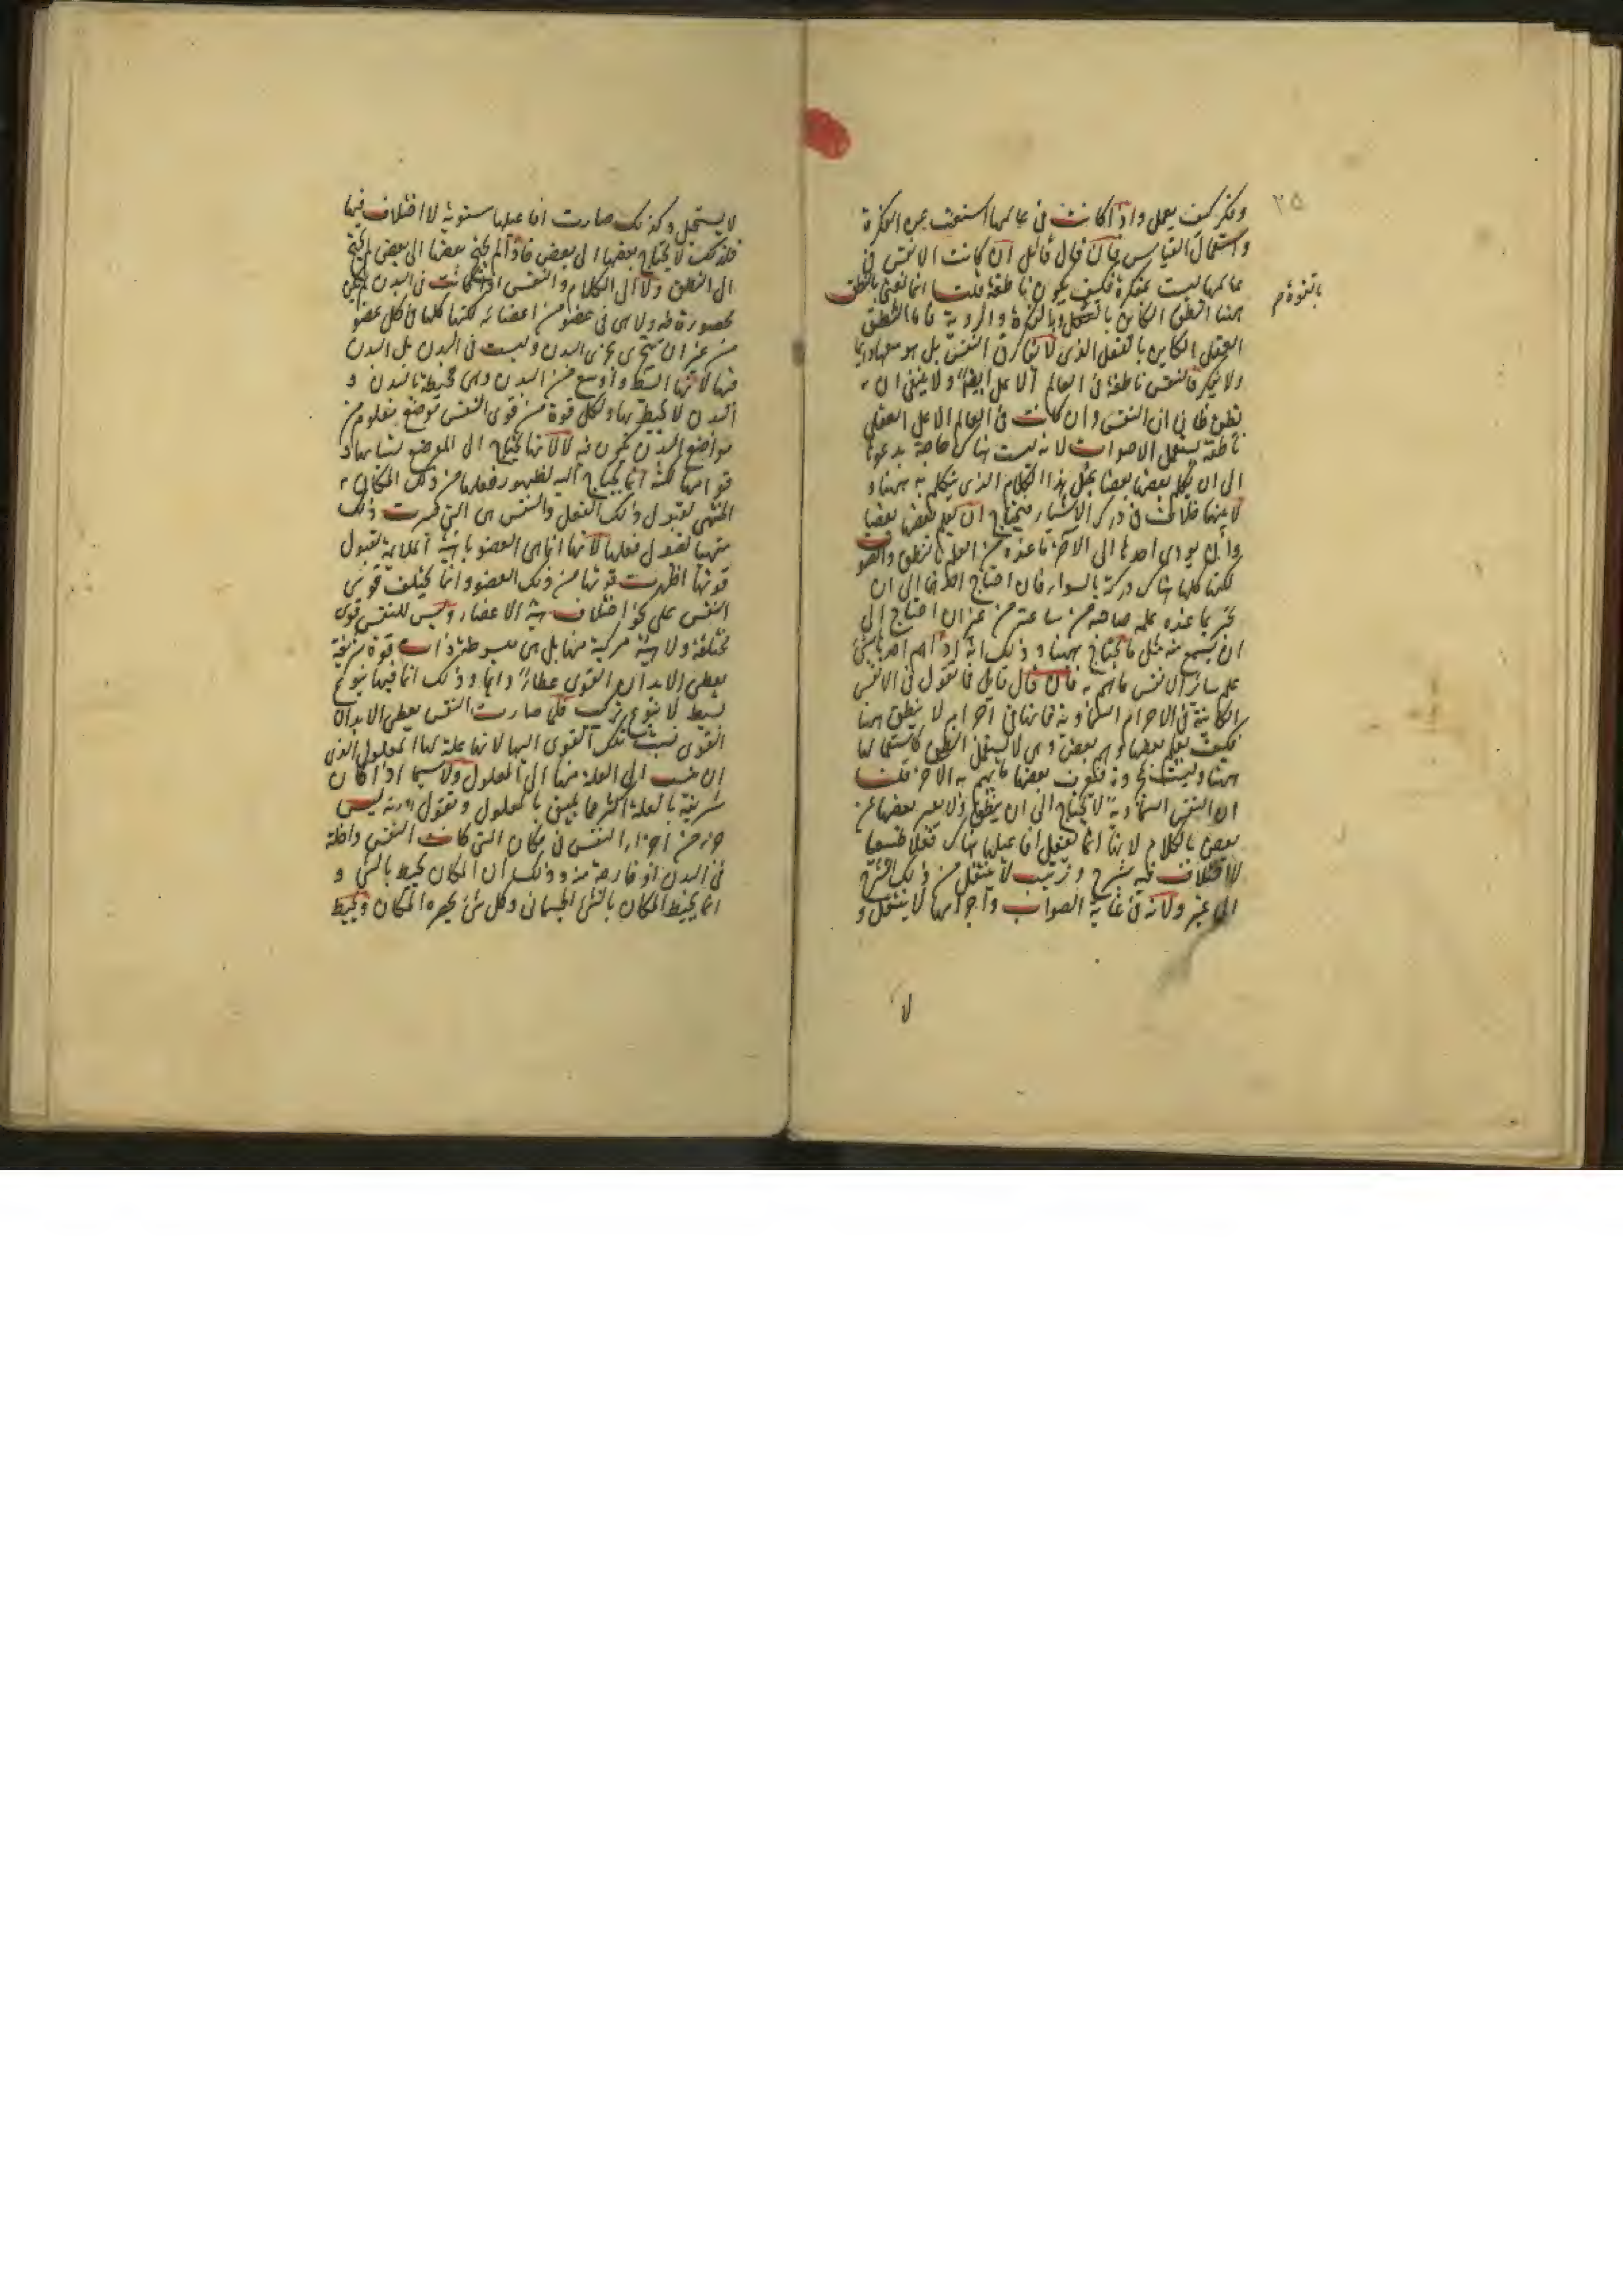 ٢٥
وفكر كيف يعمل واذا كانت فى عالمها استغنت عن الفكرة
واستعمال القياس فان قال قائل ان كانت الانفس فى
عالمها ليست مفكرة فكيف يكون ناطقة قلت انما نعنى بالنطق
ههنا النطق الكاين بالفكرة والروية فاما النطق
بالقوة م
العقلى الكاين بالفعل الذى لا يفارق النفس بل هو معها دايما
ولا يفكر فالنفس ناطقة فى العالم الاعلى ايضا ولا ينبغى ان
يظن ظان ان النفس وان كانت فى العالم الاعلى العقلى
ناطقة يستعمل الاصوات لانه ليست هناك حاجة يدعوها
الى ان يكلم بعضها بعضا بمثل هذا الكلام الذى نتكلم به ههنا و
لا بينها خلاف فى درك الاشياء فيحتاج ان يعلم بعضها بعضا
وان يودى احدها الى الاخر ما عنده من العلم بالنطق والصوت
لكنها كلها هناك دركة بالسواء فان احتاج احدها الى ان
يخبر بما عنده علمه صاحبه من ساعته من غير ان احتاج الى
ان يسمع منه مثل ما يحتاج ههنا وذلك انه اذا هم احد بشى
علم سائر الانفس ما هم به فان قال قايل فما نقول فى الانفس
الكاينة فى الاجرام السماوية فانها فى اجرام لا ينطق ههنا
فكيف يعلم بعضها وهم بعض وهى لا يستعمل النطق كاستعمالها
ههنا وليست مجردة فيكون بعضها يفهم به الاخر قلت
ان النفس السماوية لا يحتاج الى ان ينطق ولا يعبر بعضها عن
بعض بالكلام لانها انما تفعل افاعيلها هناك فعلا طبيعيا
لا اختلاف فيه بشرح وترتيب لا ينتقل من ذلك الشرح
الى غيره ولانه فى غاية الصواب واجرامها لا ينتقل و
لا
لا يستحيل وكذلك صارت افاعيلها مستوية لا اختلاف فيها
فلذلك لا يحتاج بعضها الى بعض فاذا لم يحتج بعضها الى بعض لم يحتج
الى النطق ولا الى الكلام والنفس اذا كانت فى البدن لم يكن
محصورة فيه ولا هى فى عضو من اعضائه لكنها كلها فى كل عضو
من غير ان يتجزى بتجزى البدن وليست فى البدن بل البدن
فيها لانها ابسط واوسع من البدن وهى محيطة بالبدن و
البدن لا يحيط بها ولكل قوة من قوى النفس موضع معلوم من
مواضع البدن يكون فيه لا لانها يحتاج الى الموضع لثباتها و
قوامها لكنه انما يحتاج اليه لظهور فعلها من ذلك المكان
المتهيئ لقبول ذلك الفعل والنفس هى التى صيرت ذلك
متهيئا لقبول فعلها لانها انما هى العضو بالهيئة الملايمة لقبول
قوتها اظهرت قوتها من ذلك العضو وانما يختلف قوى
النفس على نحو اختلاف هيئة الاعضاء وليس للنفس قوى
مختلفة ولا هيئة مركبة منها بل هى مبسوطة ذات قوة شريفة
يعطى الابدان القوى عطاء دايما وذلك انما فيها بنوع
بسيط لا بنوع تركيب فلما صارت النفس يعطى الابدان
القوى نسبت تلك القوى اليها لانها علة لها المعلول الذى
ان ينسب الى العلة منها الى المعلول ولا سيما اذا كان
شريفة بالعلة اكثر مما يليق بالمعلول ونقول انه ليس
جزء من اجزاء النفس فى مكان التى كانت النفس داخلة
فى البدن او خارجة منه وذلك ان المكان يحيط بالشئ و
انما يحيط المكان بالشئ الجسمانى وكل شئ يحصره المكان ويحيط